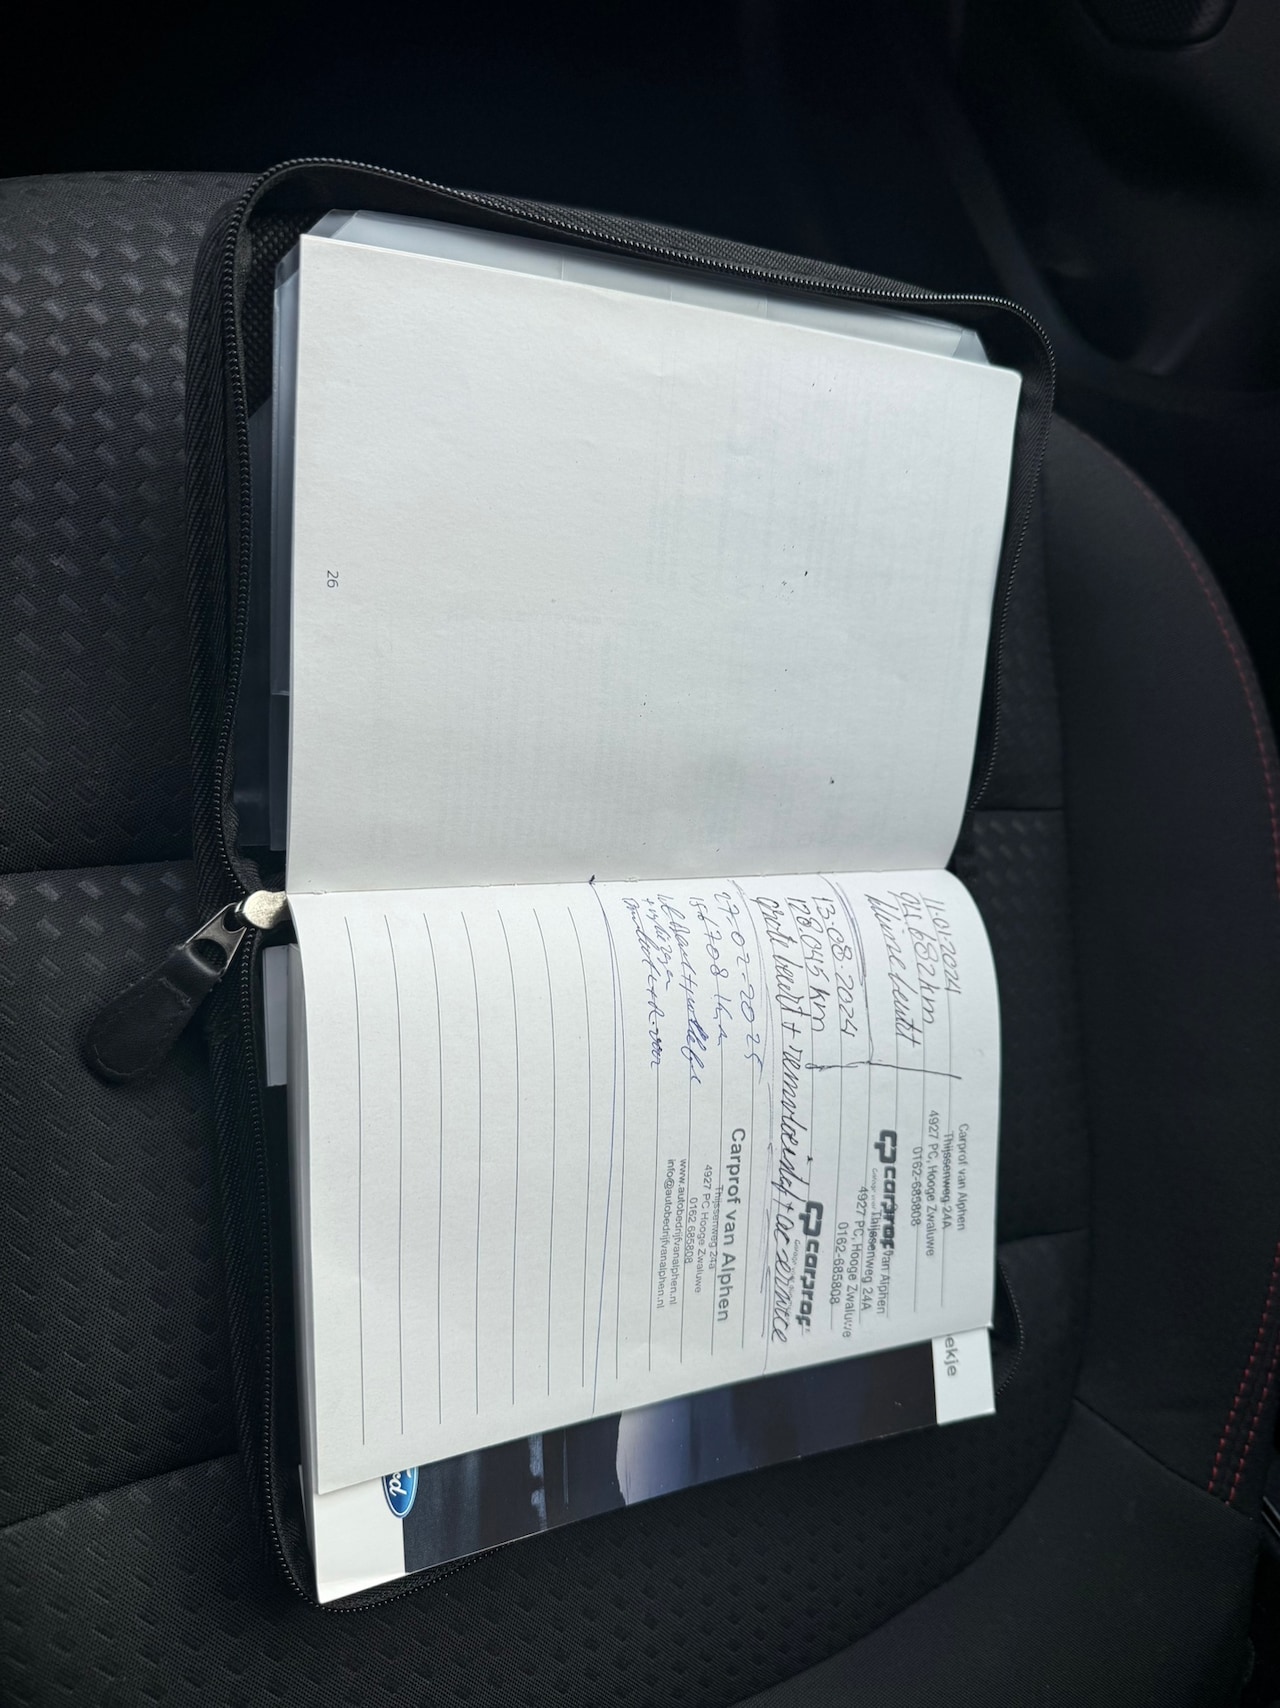 26
11.01.2024
Kleine beurt
Carprof van Alphen
Thijssenweg 24A
4927 PC, Hooge Zwaluwe
0162-685808
13.08.2024
128.045 km
grote beurt + remvloeistof + ac service
carprof
van Alphen
Thijssenweg 24A
4927 PC, Hooge Zwaluwe
0162-685808
carprof
27-02-2025
156708 km
Carprof van Alphen
Thijssenweg 24a
4927 PC Hooge Zwaluwe
0162 685808
www.autobedrijfvanalphen.nl
info@autobedrijfvanalphen.nl
ekje